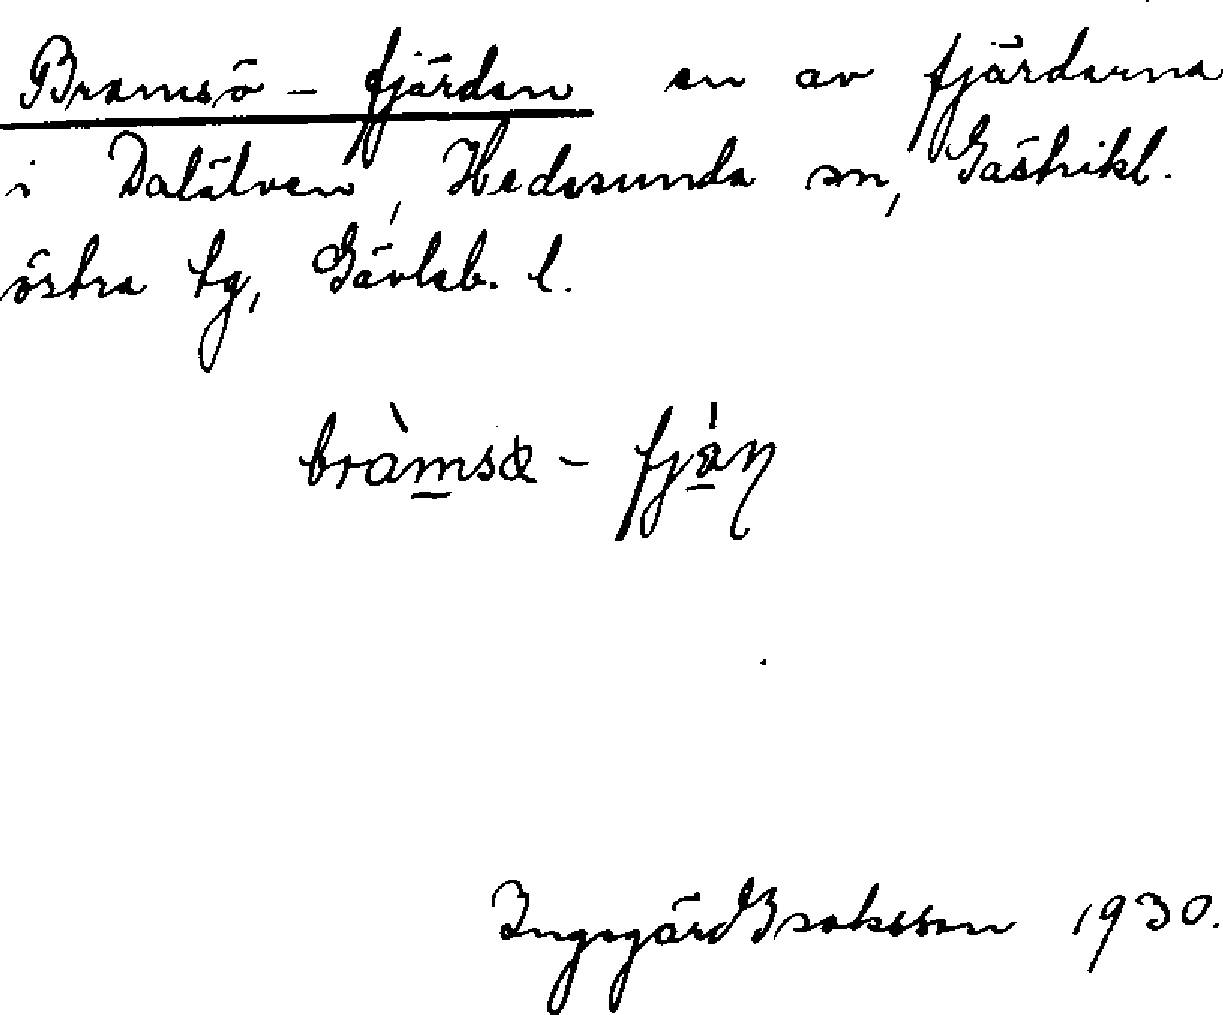 Bramsö - fjärden en av fjärdarna
i Dalälven, Hedesunda sn, Gästrikl.
östra tg, Gävleb. l.
bràmsœ - fjä́ɳ
Ingegärd Isaksson 1930.